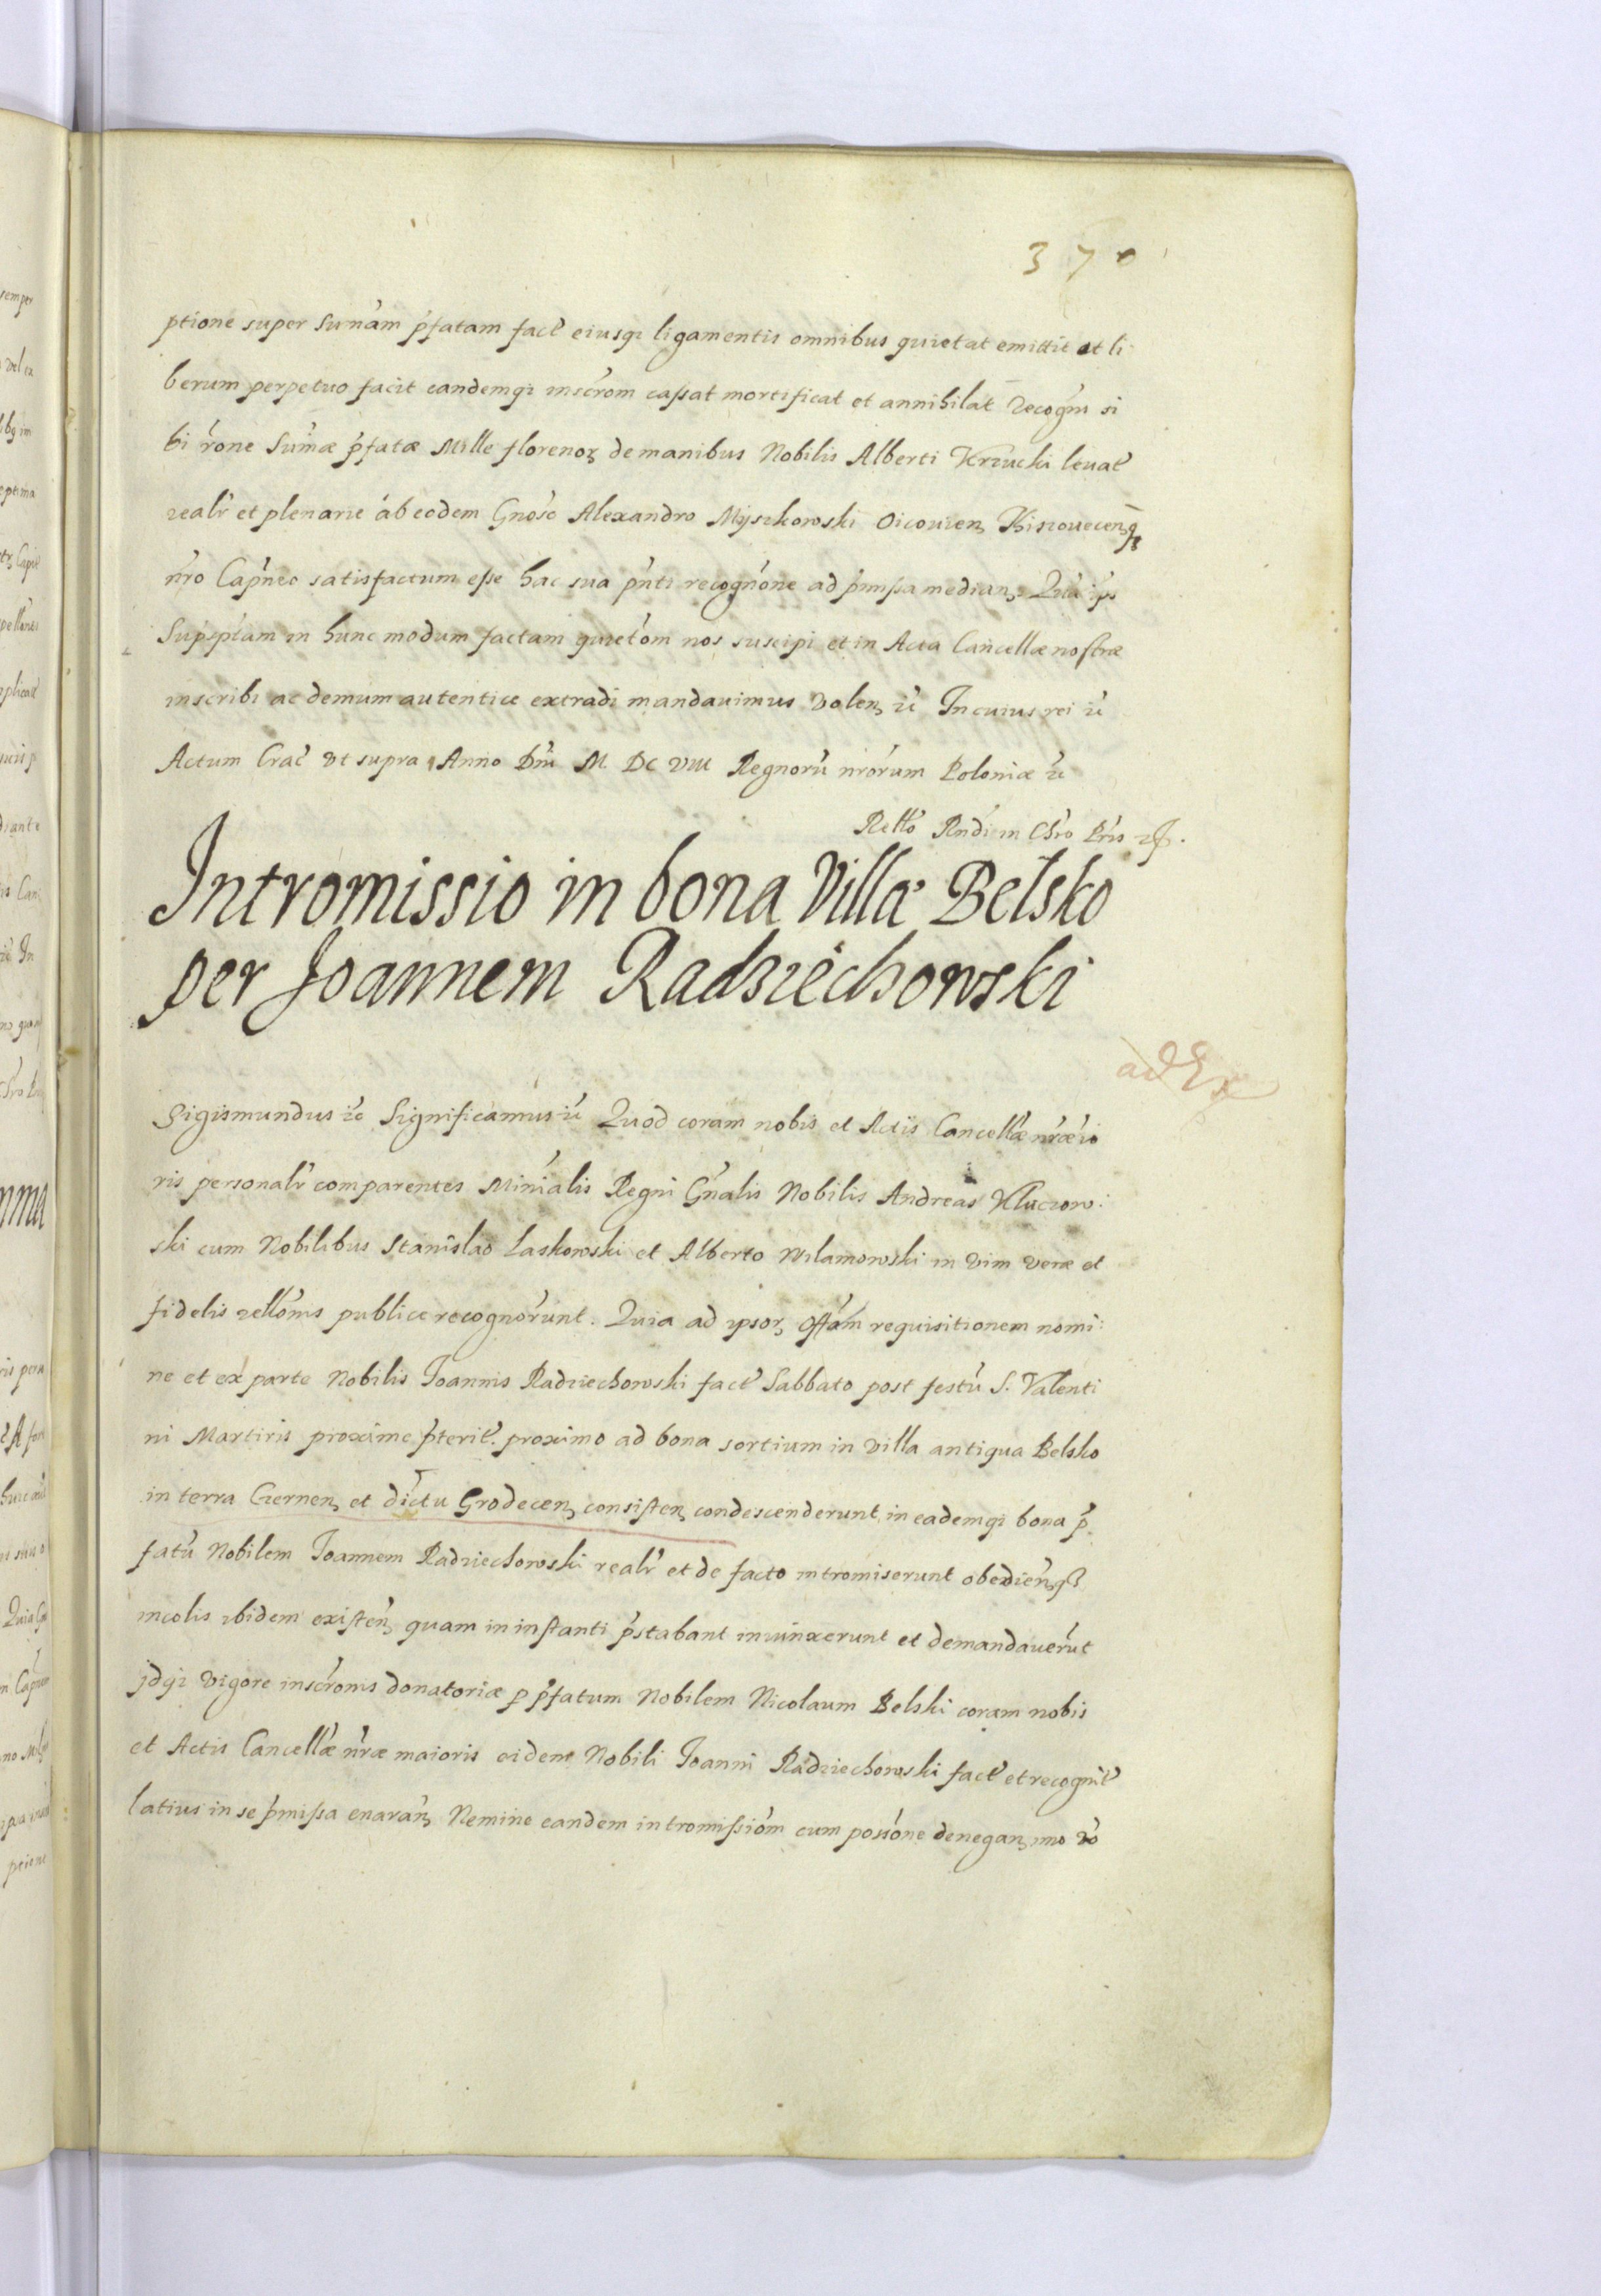 370
ptione super Sum̃am p̃fatam fact̃ eiusq₃ ligamentis omnibus quietat emittit et li
berum perpetuo facit eandemq₃ inscr̃om cassat mortificat et annihilat recogñ si
bi r̃one Sum̃æ p̃fatæ Mille florenoꝝ de manibus Nobilis Alberti Krzucki leuat̃
realr̃ et plenarie ab eodem Gnõso Alexandro Myszkowski Oicouieñ
nr̃o Cap̃neo satisfactum esse hac sua p̃nti recogñone ad p̃missa median̨
in hunc modum factam quietõm nos suscipi et in Acta Cancellæ nostræ
inscribi ac demum autentice extradi mandauimus Volen̨ ℞c̃ In cuius rei ℞c̃
Actum Crac̃ Vt supra Anno Dñi M DC VIII Regnorũ nr̃orum Poloniæ ℞c̃
Rellõ Rndi in Chr̃o Pr̃is
Intromissio in bona Villæ Belsko
per Joannem Radziechowski
ad
Sigismundus ℞c̃ Significamus ℞c̃ Quod coram nobis et Actis Cancellæ nr̃æ io
ris personalr̃ comparentes Minĩalis Regni Gñalis Nobilis Andreas Kluczow:
ski cum Nobilibus Stanislao Laskowski et Alberto Wilamowski in vim veræ et
fidelis rellõnis publice recognõrunt. Quia ad ipsoꝝ requisitionem nomi:
ne et ex parte Nobilis Joannis Radziechowski fact̃ Sabbato post festũ S. Valenti
ni Martiris proxime p̃terit̃. proximo ad bona sortium in villa antiqua Belsko
in terra Czernen̨ et dictu Grodecen̨ consisten̨ condescenderunt in eademq₃ bona p̃
fatũ Nobilem Joannem Radziechowski realr̃ et de facto intromiserunt obedien̨q₃
incolis ibidem existen̨ quam in instanti p̃stabant iniunxerunt et demandauerũt
jdq₃ vigore inscr̃onis donatoriæ p p̃fatum Nobilem Nicolaum Belski coram nobis
et Actis Cancellæ nr̃æ maioris eidem Nobili Joanni Radziechowski fact̃ et recognit̃
latius in se p̃missa enaran̨ Nemine eandem intromissiõm cum possõne denegan̨ imo vo